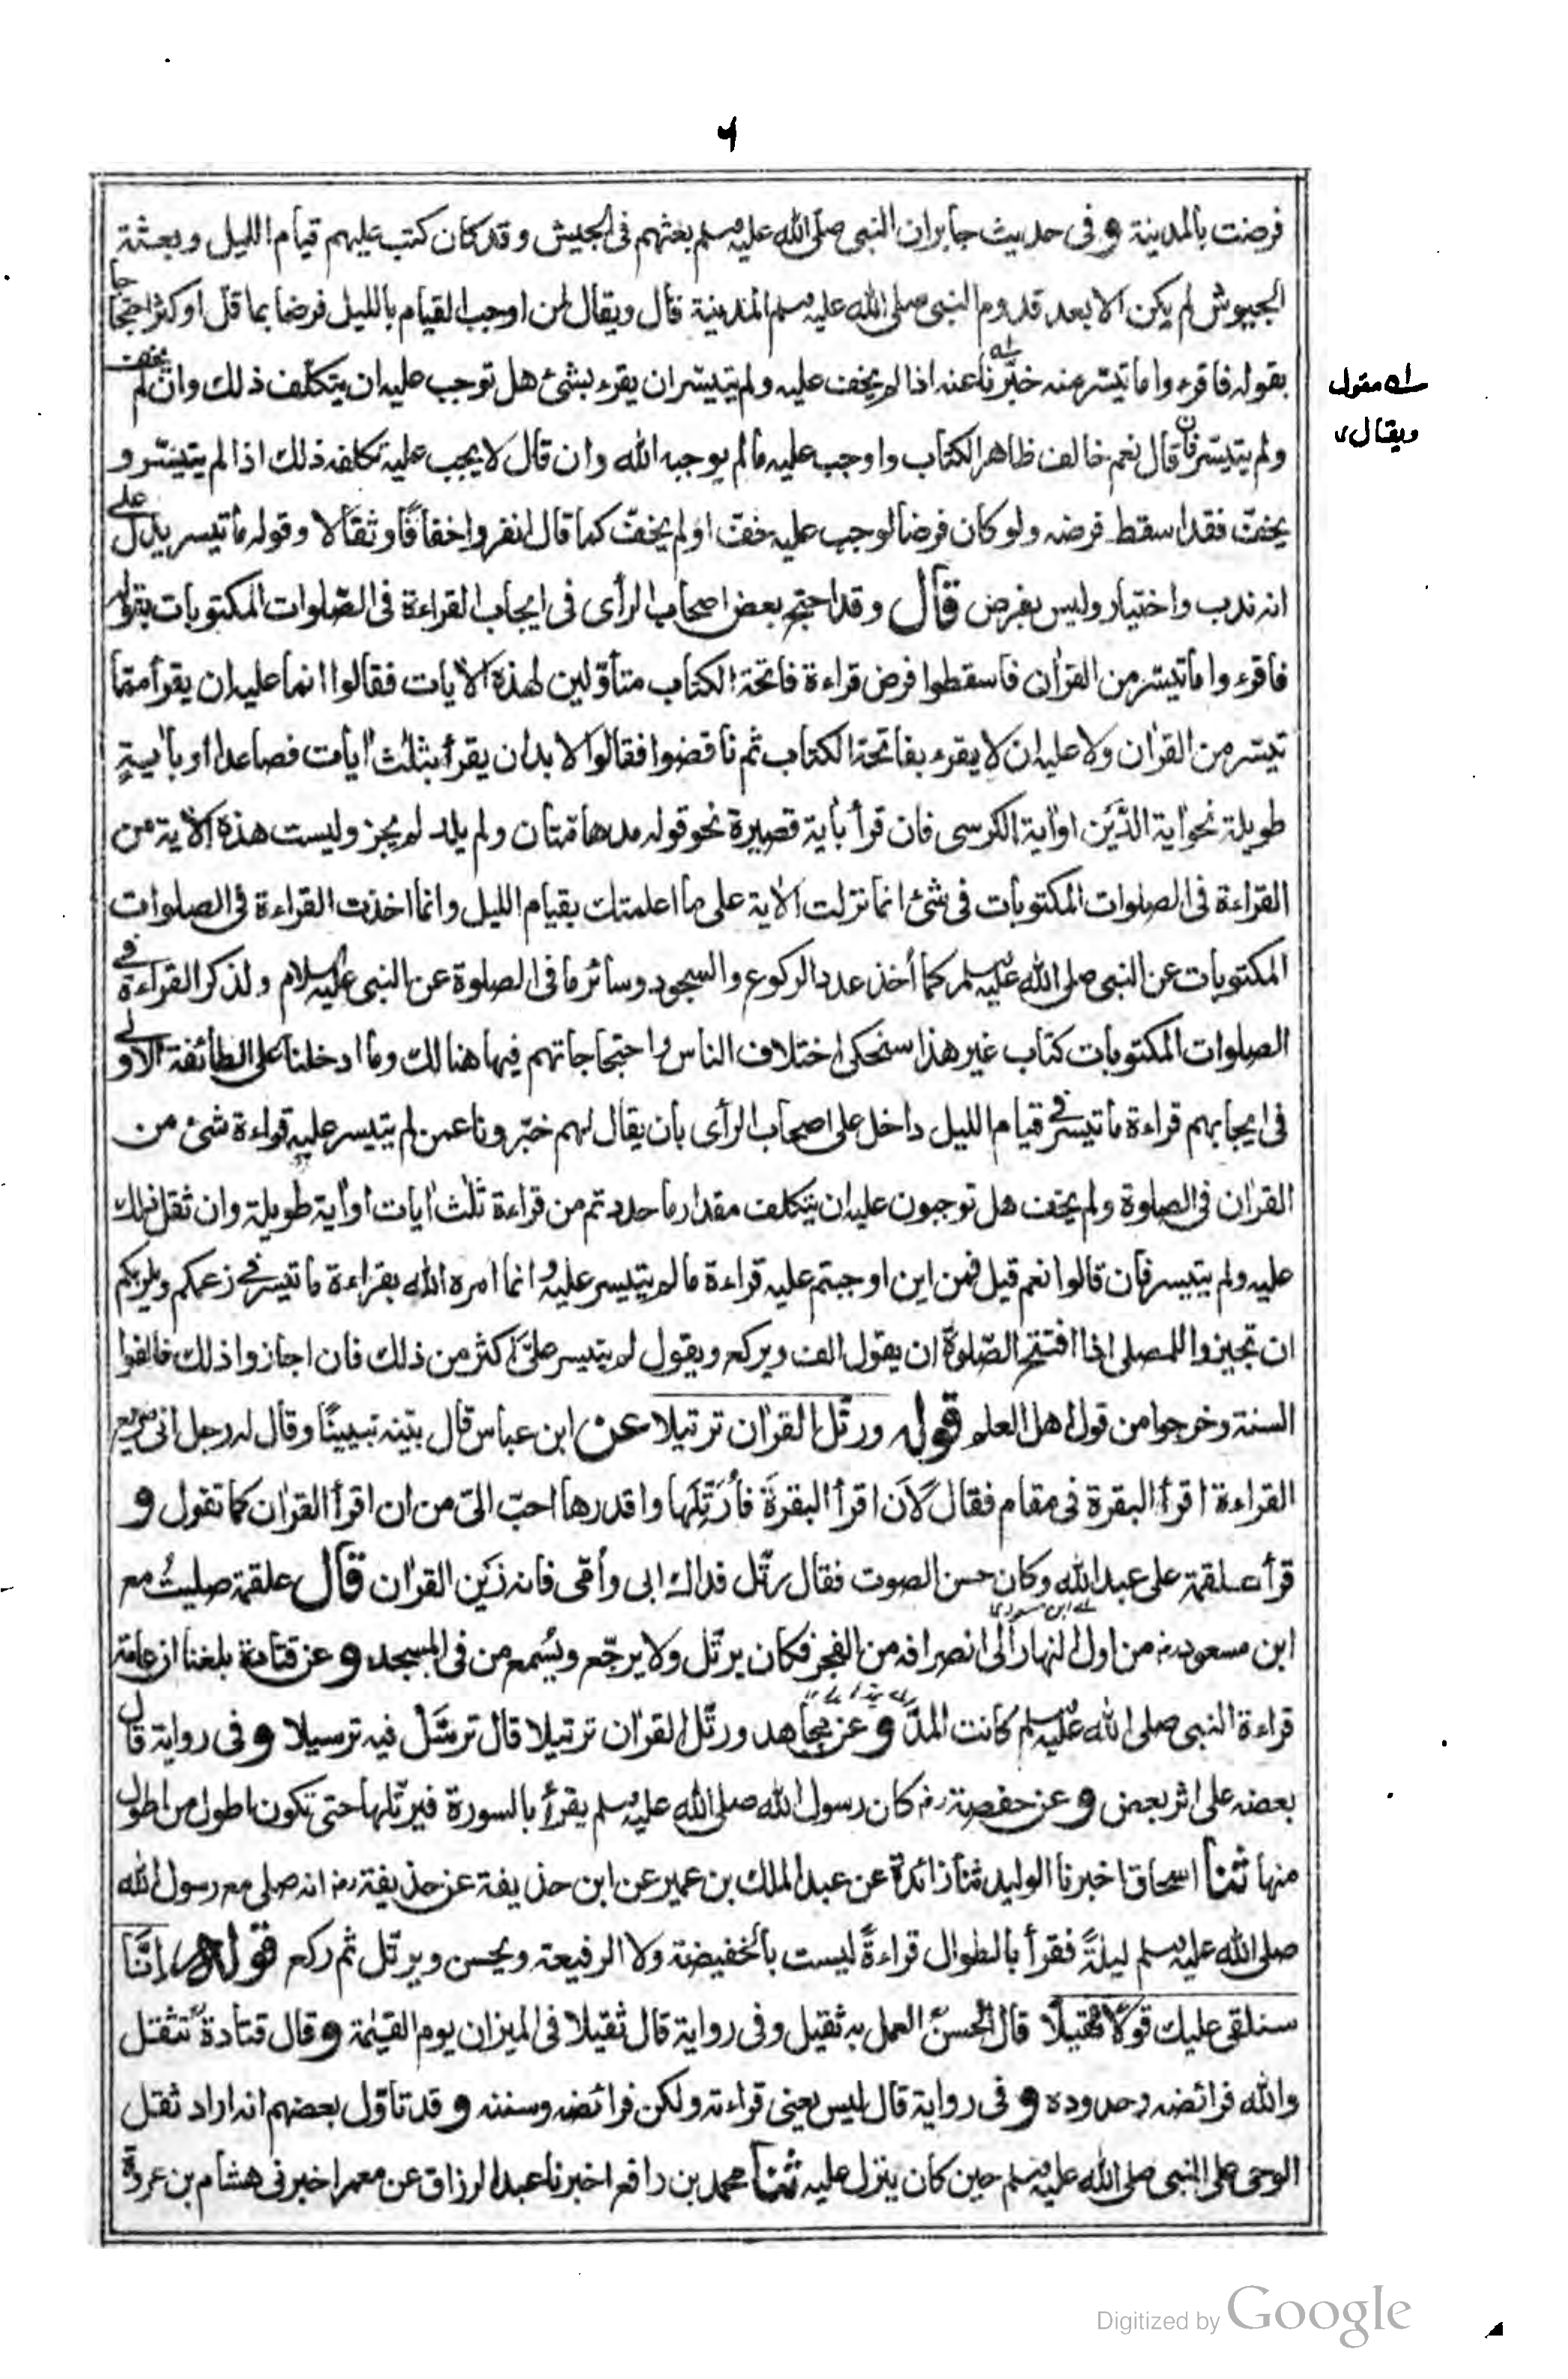 ٦
فرضت بالمدينة و فى حديث جابر ان النبى صلى الله عليه وسلم بعثهم فى الجيش و قد كان كتب عليهم قيام الليل و بعثة
الجيوش لم يكن الا بعد قدوم النبى صلى الله عليه وسلم المدينة قال ويقال لمن اوجب القيام بالليل فرضا بما قل او كثر احتجاجا
بقوله فاقرءوا ما تيسر منه خبّرنا عنه اذا لم يخف عليه ولم يتيسر ان يقرء بشئ هل توجب عليه ان يتكلف ذلك وان لم يخف
سله مقول
ويقال
ولم يتيسر فان قال نعم خالف ظاهر الكتاب واوجب عليه ما لم يوجبه الله وان قال لا يجب عليه تكلفه ذلك اذا لم يتيسر و
يخفّ فقد اسقط فرضه ولو كان فرضا لوجب عليه خفّ او لم يخفّ كما قال انفروا خفافًا وثقالا وقوله ما تيسر يدل على
انه ندب واختيار وليس بفرض قال وقد احتج بعض اصحاب الرأى فى ايجاب القراءة فى الصّلوات المكتوبات بقوله
فاقرءوا ما تيسر من القرآن فاسقطوا فرض قراءة فاتحة الكتاب متأوّلين لهذه الآيات فقالوا انما عليه ان يقرأ مما
تيسر من القرآن ولا عليه ان لا يقرء بفاتحة الكتاب ثم ناقضوا فقالوا لا بد ان يقرأ بثلث آيات فصاعدا او بآيةٍ
طويلة نحو آية الدَّيْن او آية الكرسى فان قرأ بآية قصيرة نحو قوله مدهامّتان ولم يلد لم يجز وليست هذه الآية من
القراءة فى الصلوات المكتوبات فى شئ انما نزلت الآية على ما اعلمتك بقيام الليل وانما اخذت القراءة فى الصلوات
المكتوبات عن النبى صلى الله عليه وسلم كما أخذ عدد الركوع والسجود وسائر ما فى الصلوة عن النبى عليه السلام ولذكر القراءة فى
الصلوات المكتوبات كتاب غير هذا سنحكى اختلاف الناس واحتجاجاتهم فيها هنالك وما ادخلنا على الطائفة الاولى
فى ايجابهم قراءة ما تيسر فى قيام الليل داخل على اصحاب الرأى بان يقال لهم خبّرونا عمن لم يتيسر عليه قراءة شئ من
القرآن فى الصلوة ولم يخف هل توجبون عليه ان يتكلف مقدار ما حددتم من قراءة ثلث آيات او آية طويلة وان ثقل ذلك
عليه ولم يتيسر فان قالوا نعم قيل فمن اين اوجبتم عليه قراءة ما لم يتيسر عليه و انما امره الله بقراءة ما تيسر فى زعمكم ويلزمكم
ان تجيزوا للمصلى اذا افتتح الصّلوةَ ان يقول الف ويركع ويقول لم يتيسر علىَّ اكثر من ذلك فان اجازوا ذلك خالفوا
السنة وخرجوا من قول اهل العلم قوله ورتّل القرآن ترتيلا عن ابن عباس قال بيّنه تبيينًا وقال له رجل انى سريع
القراءة اقرأ البقرة فى مقام فقال لَاَن اقرأ البقرةَ فأُرَتِّلَها واقدرها احبّ الىّ من ان اقرأ القرآن كما تقول و
قرأ علقمة على عبد الله وكان حسن الصوت فقال رتّل فداك ابى وأمّى فانه زَين القرآن قال علقمة صليتُ مع
ابن مسعود رضه من اول النهار الى انصرافه من الفجر فكان يرتّل ولا يرجّع ويُسْمع من فى المسجد و عن قتادة بلغنا ان عامة
قراءة النبى صلى الله عليه وسلم كانت المدّ و عن مجاهد ورتّل القرآن ترتيلا قال ترسّل فيه ترسيلا و فى رواية قال
بعضه على اثر بعض و عن حفصة رضه كان رسول الله صلى الله عليه وسلم يقرأ بالسورة فيرتّلها حتى تكون اطول من اطول
منها ثنا اسحاق اخبرنا الوليد ثنا زائدة عن عبد الملك بن عمير عن ابن حذيفة عن حذيفة رضه انه صلى مع رسول الله
صلى الله عليه وسلم ليلةً فقرأ بالطوال قراءةً ليست بالخفيضة ولا الرفيعة ويحسن ويرتّل ثم ركع قوله اِنَّا
سنلقى عليك قولًا ثقيلًا قال الحسنُ العمل به ثقيل وفى رواية قال ثقيلا فى الميزان يوم القيٰمة و قال قتادة تثقل
والله فرائضه وحدوده و فى رواية قال ليس يعنى قراءته ولكن فرائضه وسننه و قد تأوّل بعضهم انه اراد ثقل
الوحى على النبى صلى الله عليه وسلم حين كان ينزل عليه ثنا محمد بن رافع اخبرنا عبد الرزاق عن معمر اخبرنى هشام بن عروة
Digitized by Google